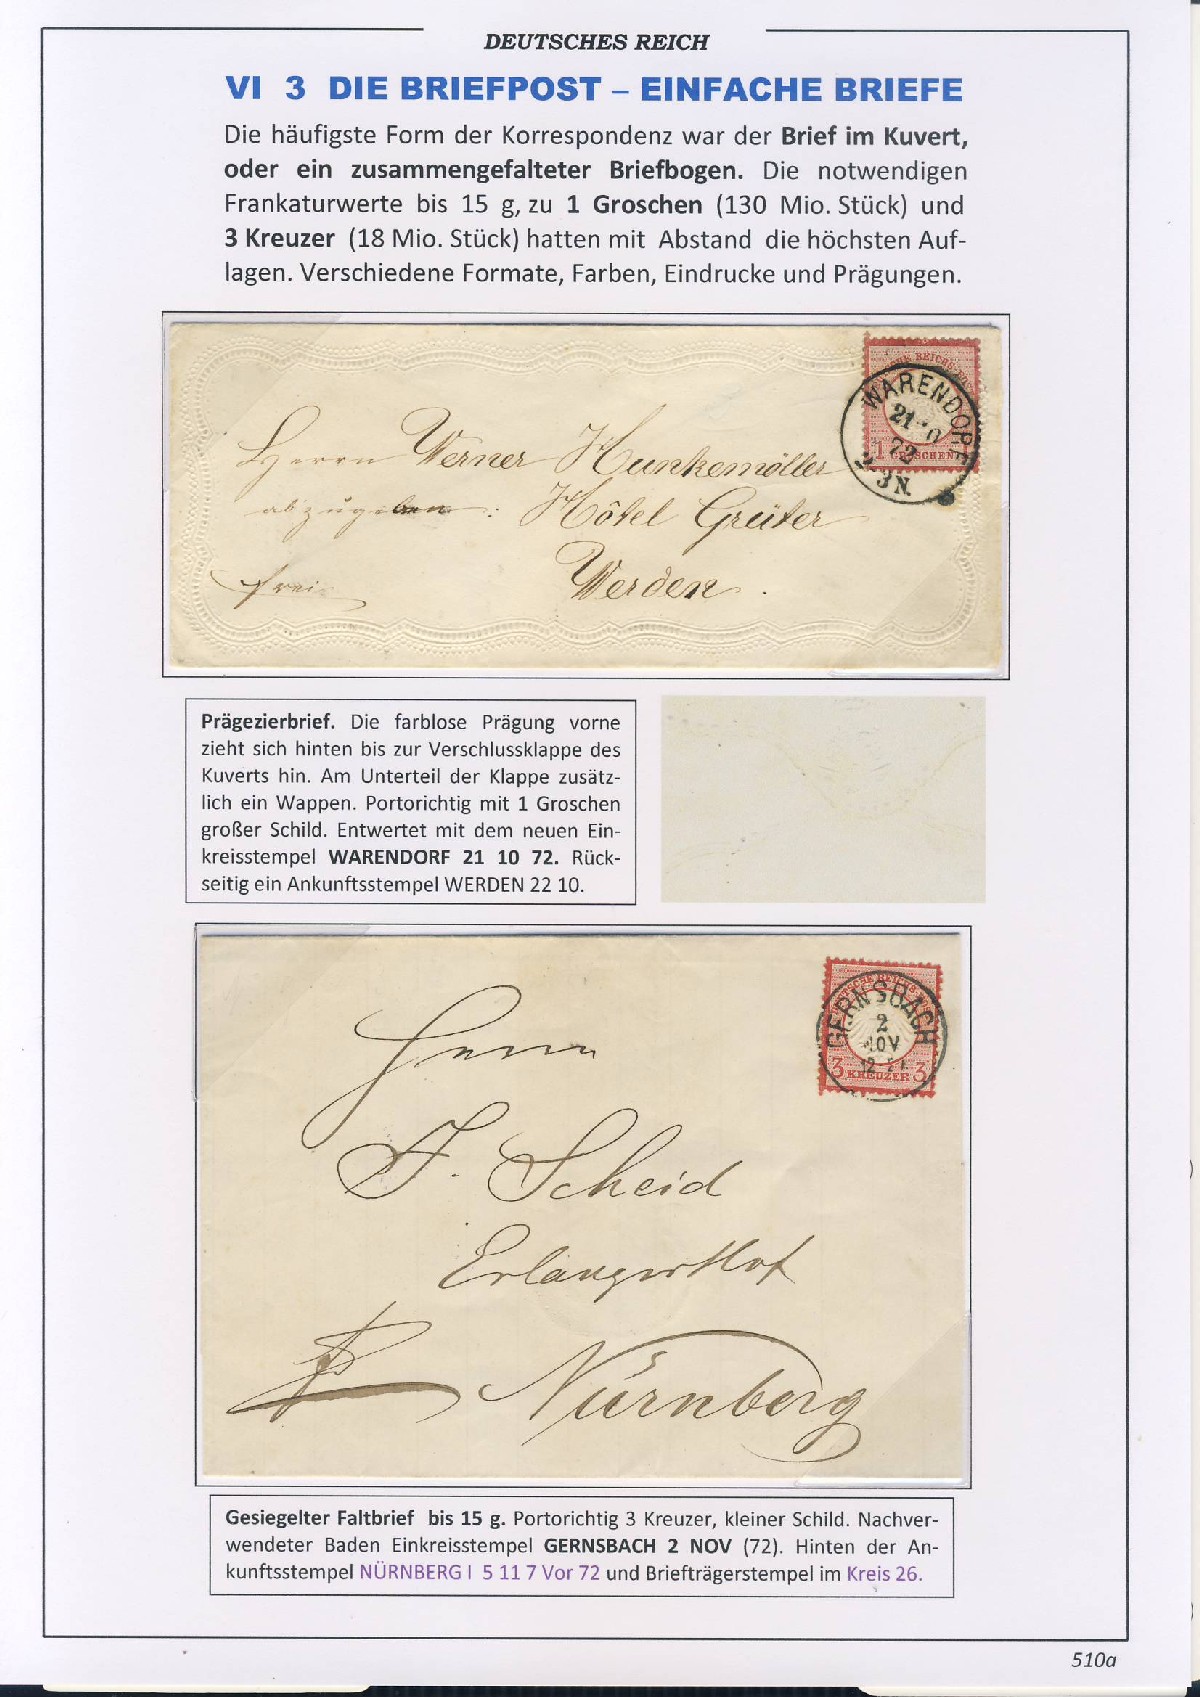 DEUTSCHES REICH
VI 3 DIE BRIEFPOST – EINFACHE BRIEFE
Die häufigste Form der Korrespondenz war der Brief im Kuvert,
oder ein zusammengefalteter Briefbogen. Die notwendigen
Frankaturwerte bis 15 g, zu 1 Groschen (130 Mio. Stück) und
3 Kreuzer (18 Mio. Stück) hatten mit Abstand die höchsten Auf-
lagen. Verschiedene Formate, Farben, Eindrucke und Prägungen.
WARENDORF
21 10
72
2-3N.
1 GROSCHEN
Herrn Werner Hunkemöller
abzugeben: Hôtel Greüter
frei
Werden.
Prägezierbrief. Die farblose Prägung vorne
zieht sich hinten bis zur Verschlussklappe des
Kuverts hin. Am Unterteil der Klappe zusätz-
lich ein Wappen. Portorichtig mit 1 Groschen
großer Schild. Entwertet mit dem neuen Ein-
kreisstempel WARENDORF 21 10 72. Rück-
seitig ein Ankunftsstempel WERDEN 22 10.
GERNSBACH
2
NOV
3 KREUZER 3
Herrn
J. Scheid
Erlanger Hof
Nürnberg
Gesiegelter Faltbrief bis 15 g. Portorichtig 3 Kreuzer, kleiner Schild. Nachver-
wendeter Baden Einkreisstempel GERNSBACH 2 NOV (72). Hinten der An-
kunftsstempel NÜRNBERG I 5 11 7 Vor 72 und Briefträgerstempel im Kreis 26.
510a